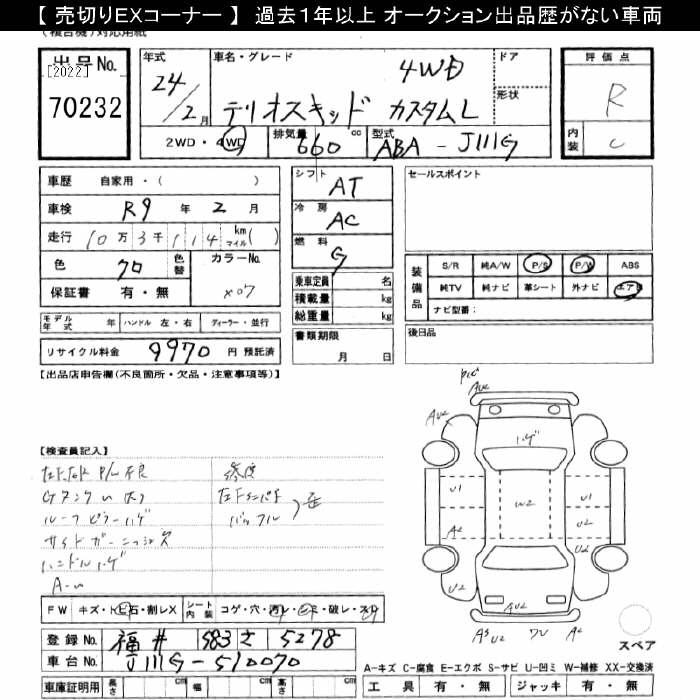 【 売切りEXコーナー 】 過去１年以上 オークション出品歴がない車両
(複合機)対応用紙
出品No. [2022] 70232
年式 24/2月
車名・グレード 4WD
テリオスキッド カスタムL
ドア
形状
評価点 R
内装 C
2WD・4WD 排気量 660 cc 型式 ABA - J111G
車歴 自家用・( )
車検 R9 年 2 月
走行 10万3千114 km マイル( )
色 クロ 色替 カラーNo. X07
保証書 有・無
シフト AT
冷房 AC
燃料 G
乗車定員 名
積載量 kg
総重量 kg
セールスポイント
装備品 S/R 純A/W P/S P/W ABS
純TV 純ナビ 革シート 外ナビ エアB
ナビ型番:
モデル年式 年 ハンドル 左・右 ディーラー・並行
リサイクル料金 9970 円 預託済
書類期限 月 日
後日品
【出品店申告欄(不良箇所・欠品・注意事項等)】
【検査員記入】
P/W 不良
ルーフ ピラー ハゲ
ハンドル ハゲ
ハゲ
A2
A2
U1
U1
W2
A2
U2
U2
U2
U2
A2
FW キズ・トビ石・割レX シート内装 コゲ・穴・汚レ・シミ・破レ・スレ
登録No. 福井 583 さ 5278
車台No. J111G-510070
スペア
A-キズ C-腐食 E-エクボ S-サビ U-凹ミ W-補修 XX-交換済
車庫証明用 長さ cm 幅 cm 高さ cm
工具 有・無 ジャッキ 有・無